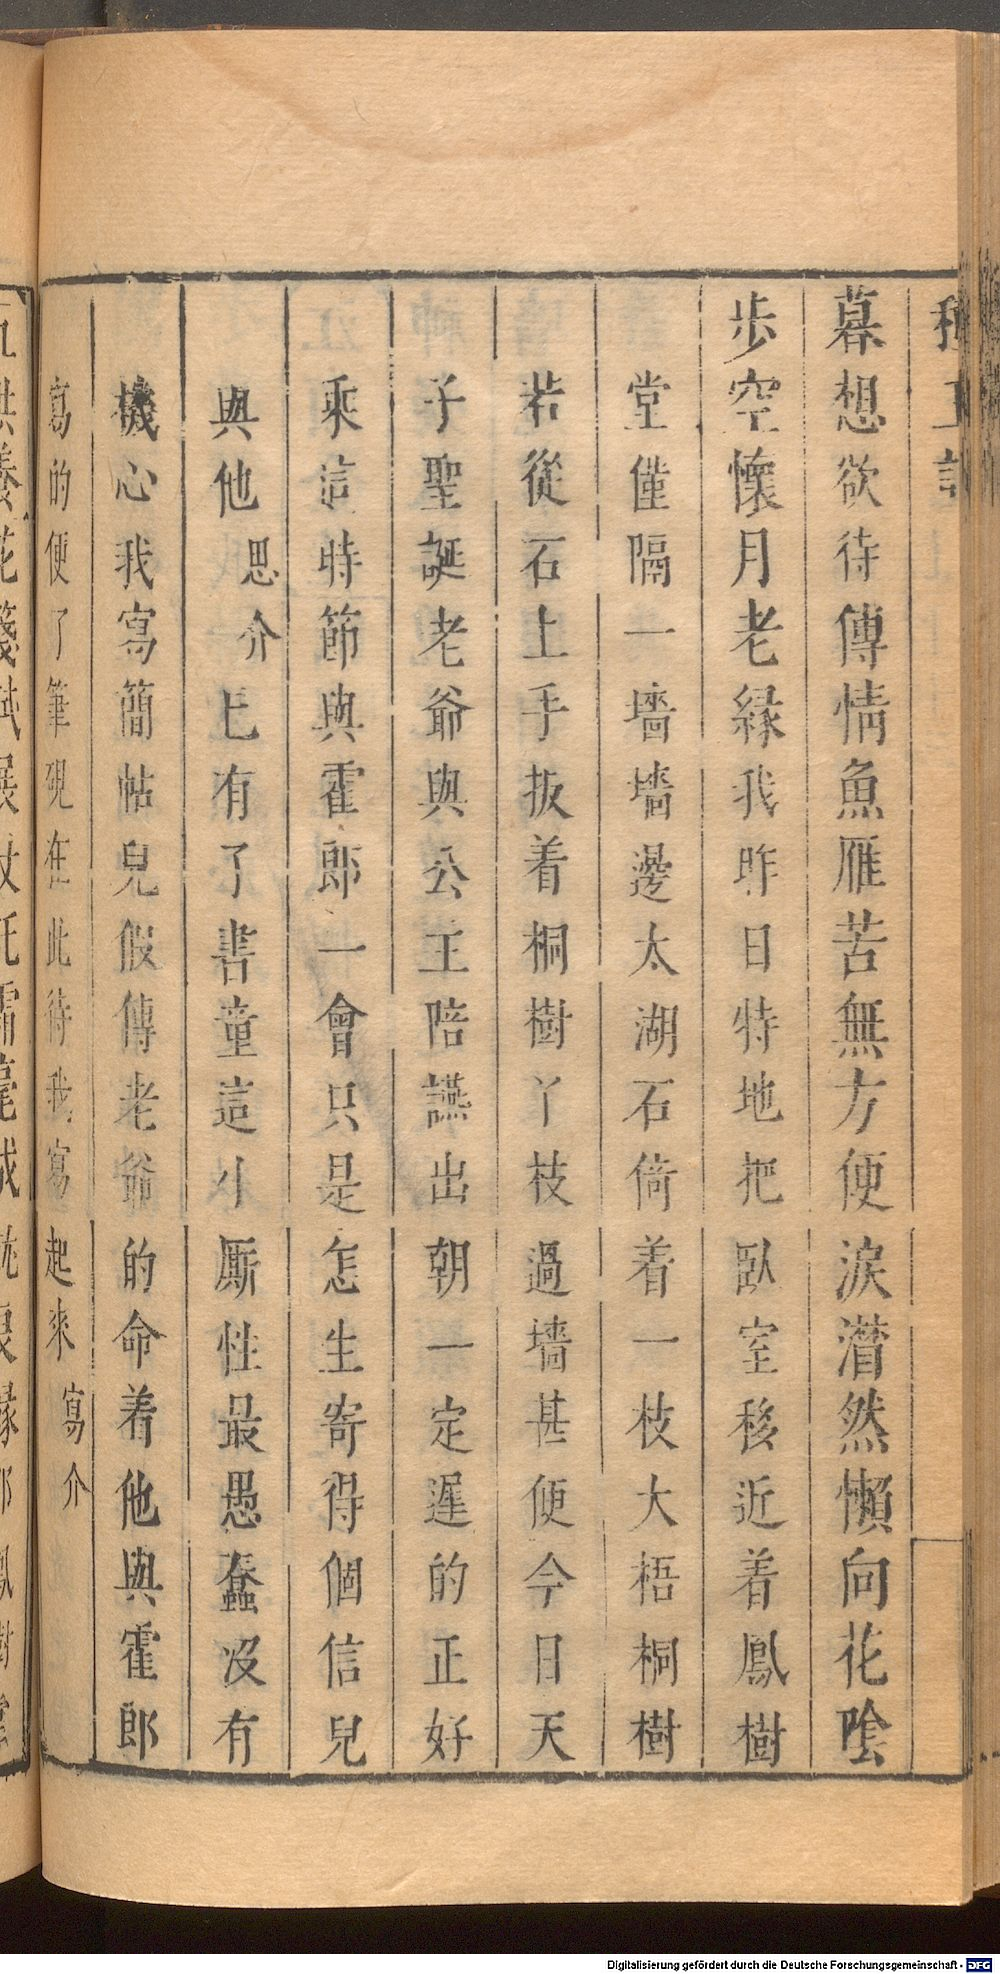 暮想欲待傳情魚雁苦無方便淚潸然懶向花陰
步空懷月老緣我昨日特地把臥室移近着鳳樹
堂僅隔一墻墻邊太湖石倚着一枝大梧桐樹
若從石上手扳着桐樹丫枝過墻甚便今日天
子聖誕老爺與公王陪讌出朝一定遲的正好
乘這時節與霍郎一會只是怎生寄得個信兒
與他思介七有了書童這小厮性最愚蠢没有
機心我寫簡帖兒假傳老爺的命着他與霍郎
寫的便了筆硯在此待我寫起來寫介
Digitalisierung gefördert durch die Deutsche Forschungsgemeinschaft - DFG